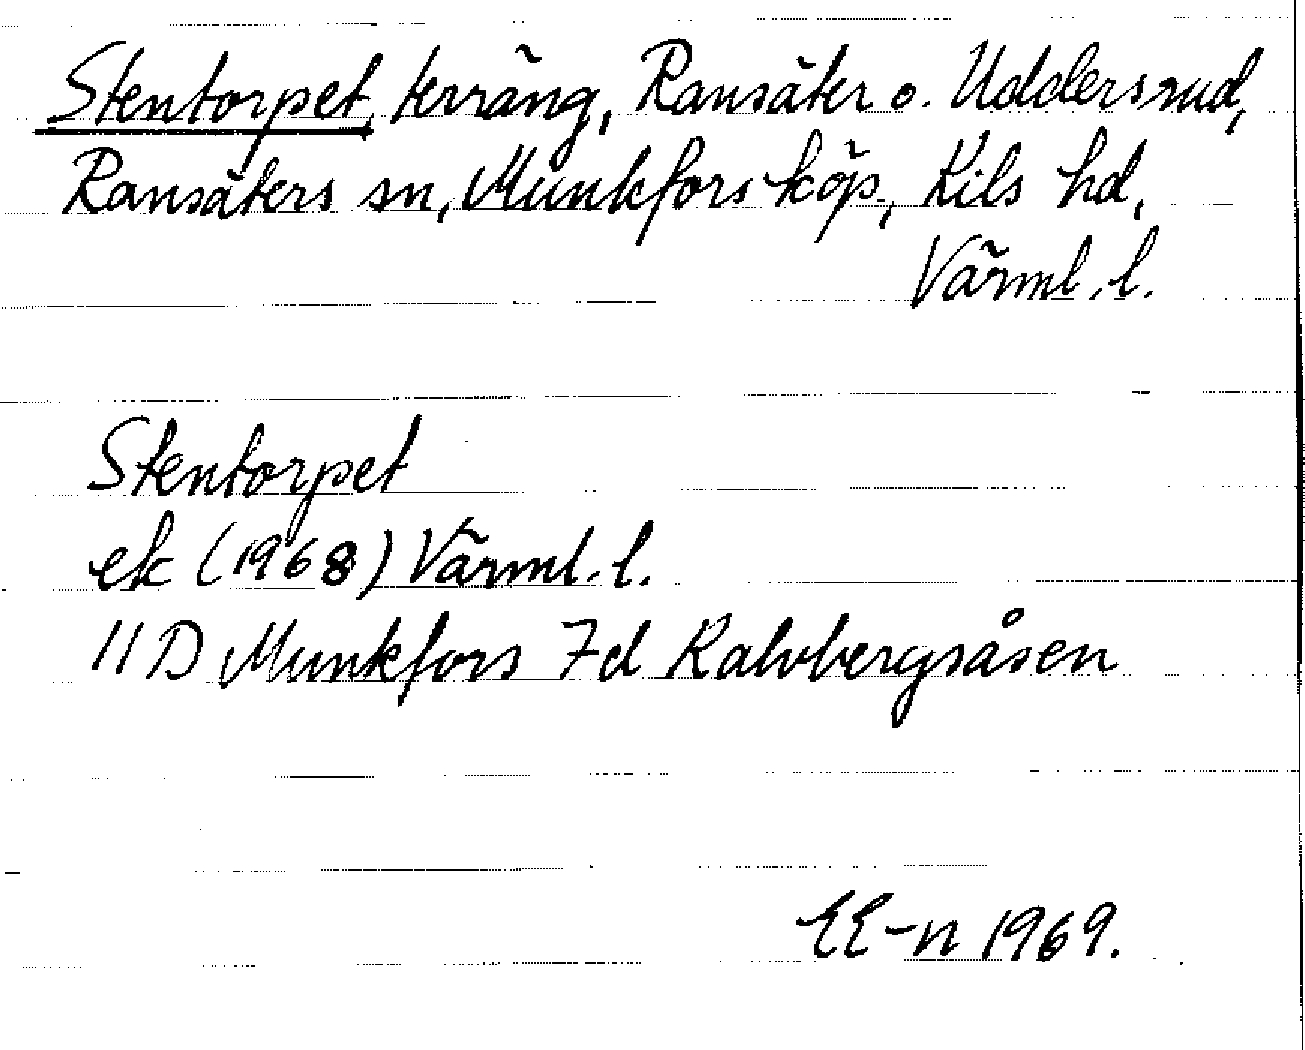 Stentorpet, terräng, Ransäter o. Uddersrud,
Ransäters sn, Munkfors köp, Kils hd,
Värml. l.
Stentorpet
ek (1968) Värml. l.
11 D Munkfors 7d Kalvbergsåsen
EE-n 1969.